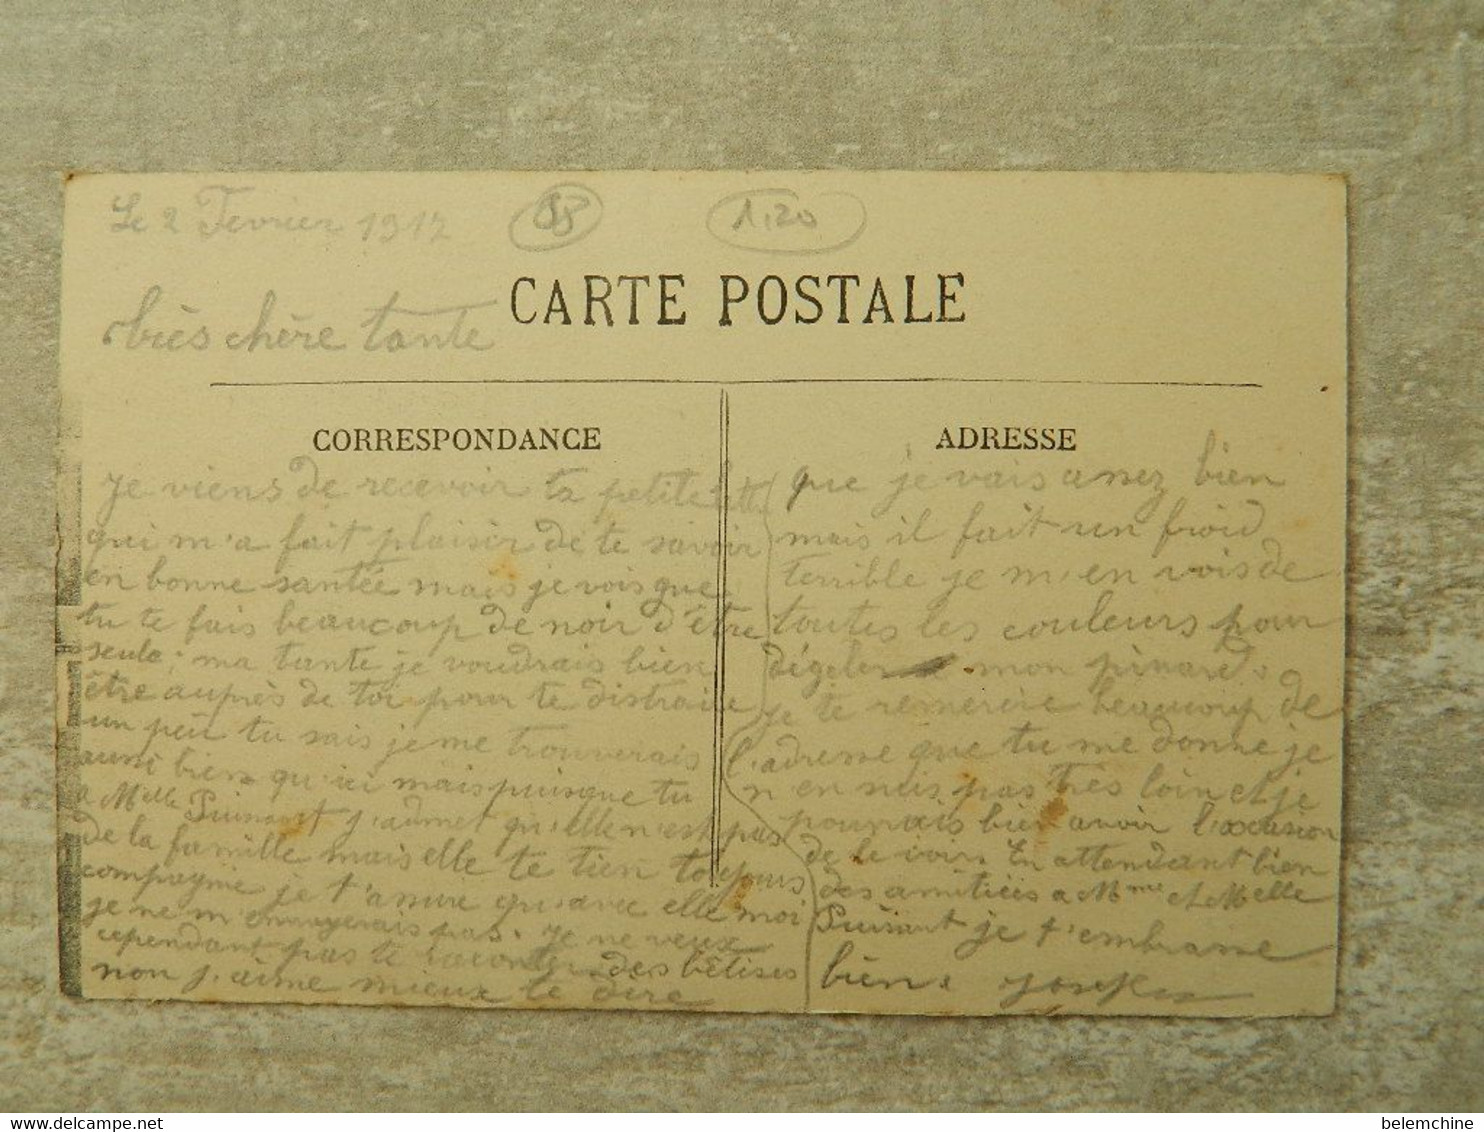 Le 2 Fevrier 1917
88
1,20
CARTE POSTALE
très chère tante
CORRESPONDANCE
Je viens de recevoir ta petite lett
qui m'a fait plaisir de te savoir
en bonne santée mais je vois que
tu te fais beaucoup de noir d'être
seule; ma tante je voudrais bien
être auprès de toi pour te distraire
un peu tu sais je me trouverais
aussi bien qu'ici mais puisque tu
a Melle Puissant j'admet qu'elle n'est pas
de la famille mais elle te tien toujours
compagnie je t'assure qu'avec elle moi
je ne m'ennuyerais pas. Je ne veux
cependant pas te raconter des bêtises
non j'aime mieux te dire
ADRESSE
que je vais assez bien
mais il fait un froid
terrible je m'en vois de
toutes les couleurs pour
dégeler mon pinard.
je te remercie beaucoup de
l'adresse que tu me donne je
n'en suis pas très loin et je
pourrais bien avoir l'occasion
de le voir. En attendant bien
des amitiées a Mme et Melle
Puissant je t'embrasse
bien. Joseph
belemchine